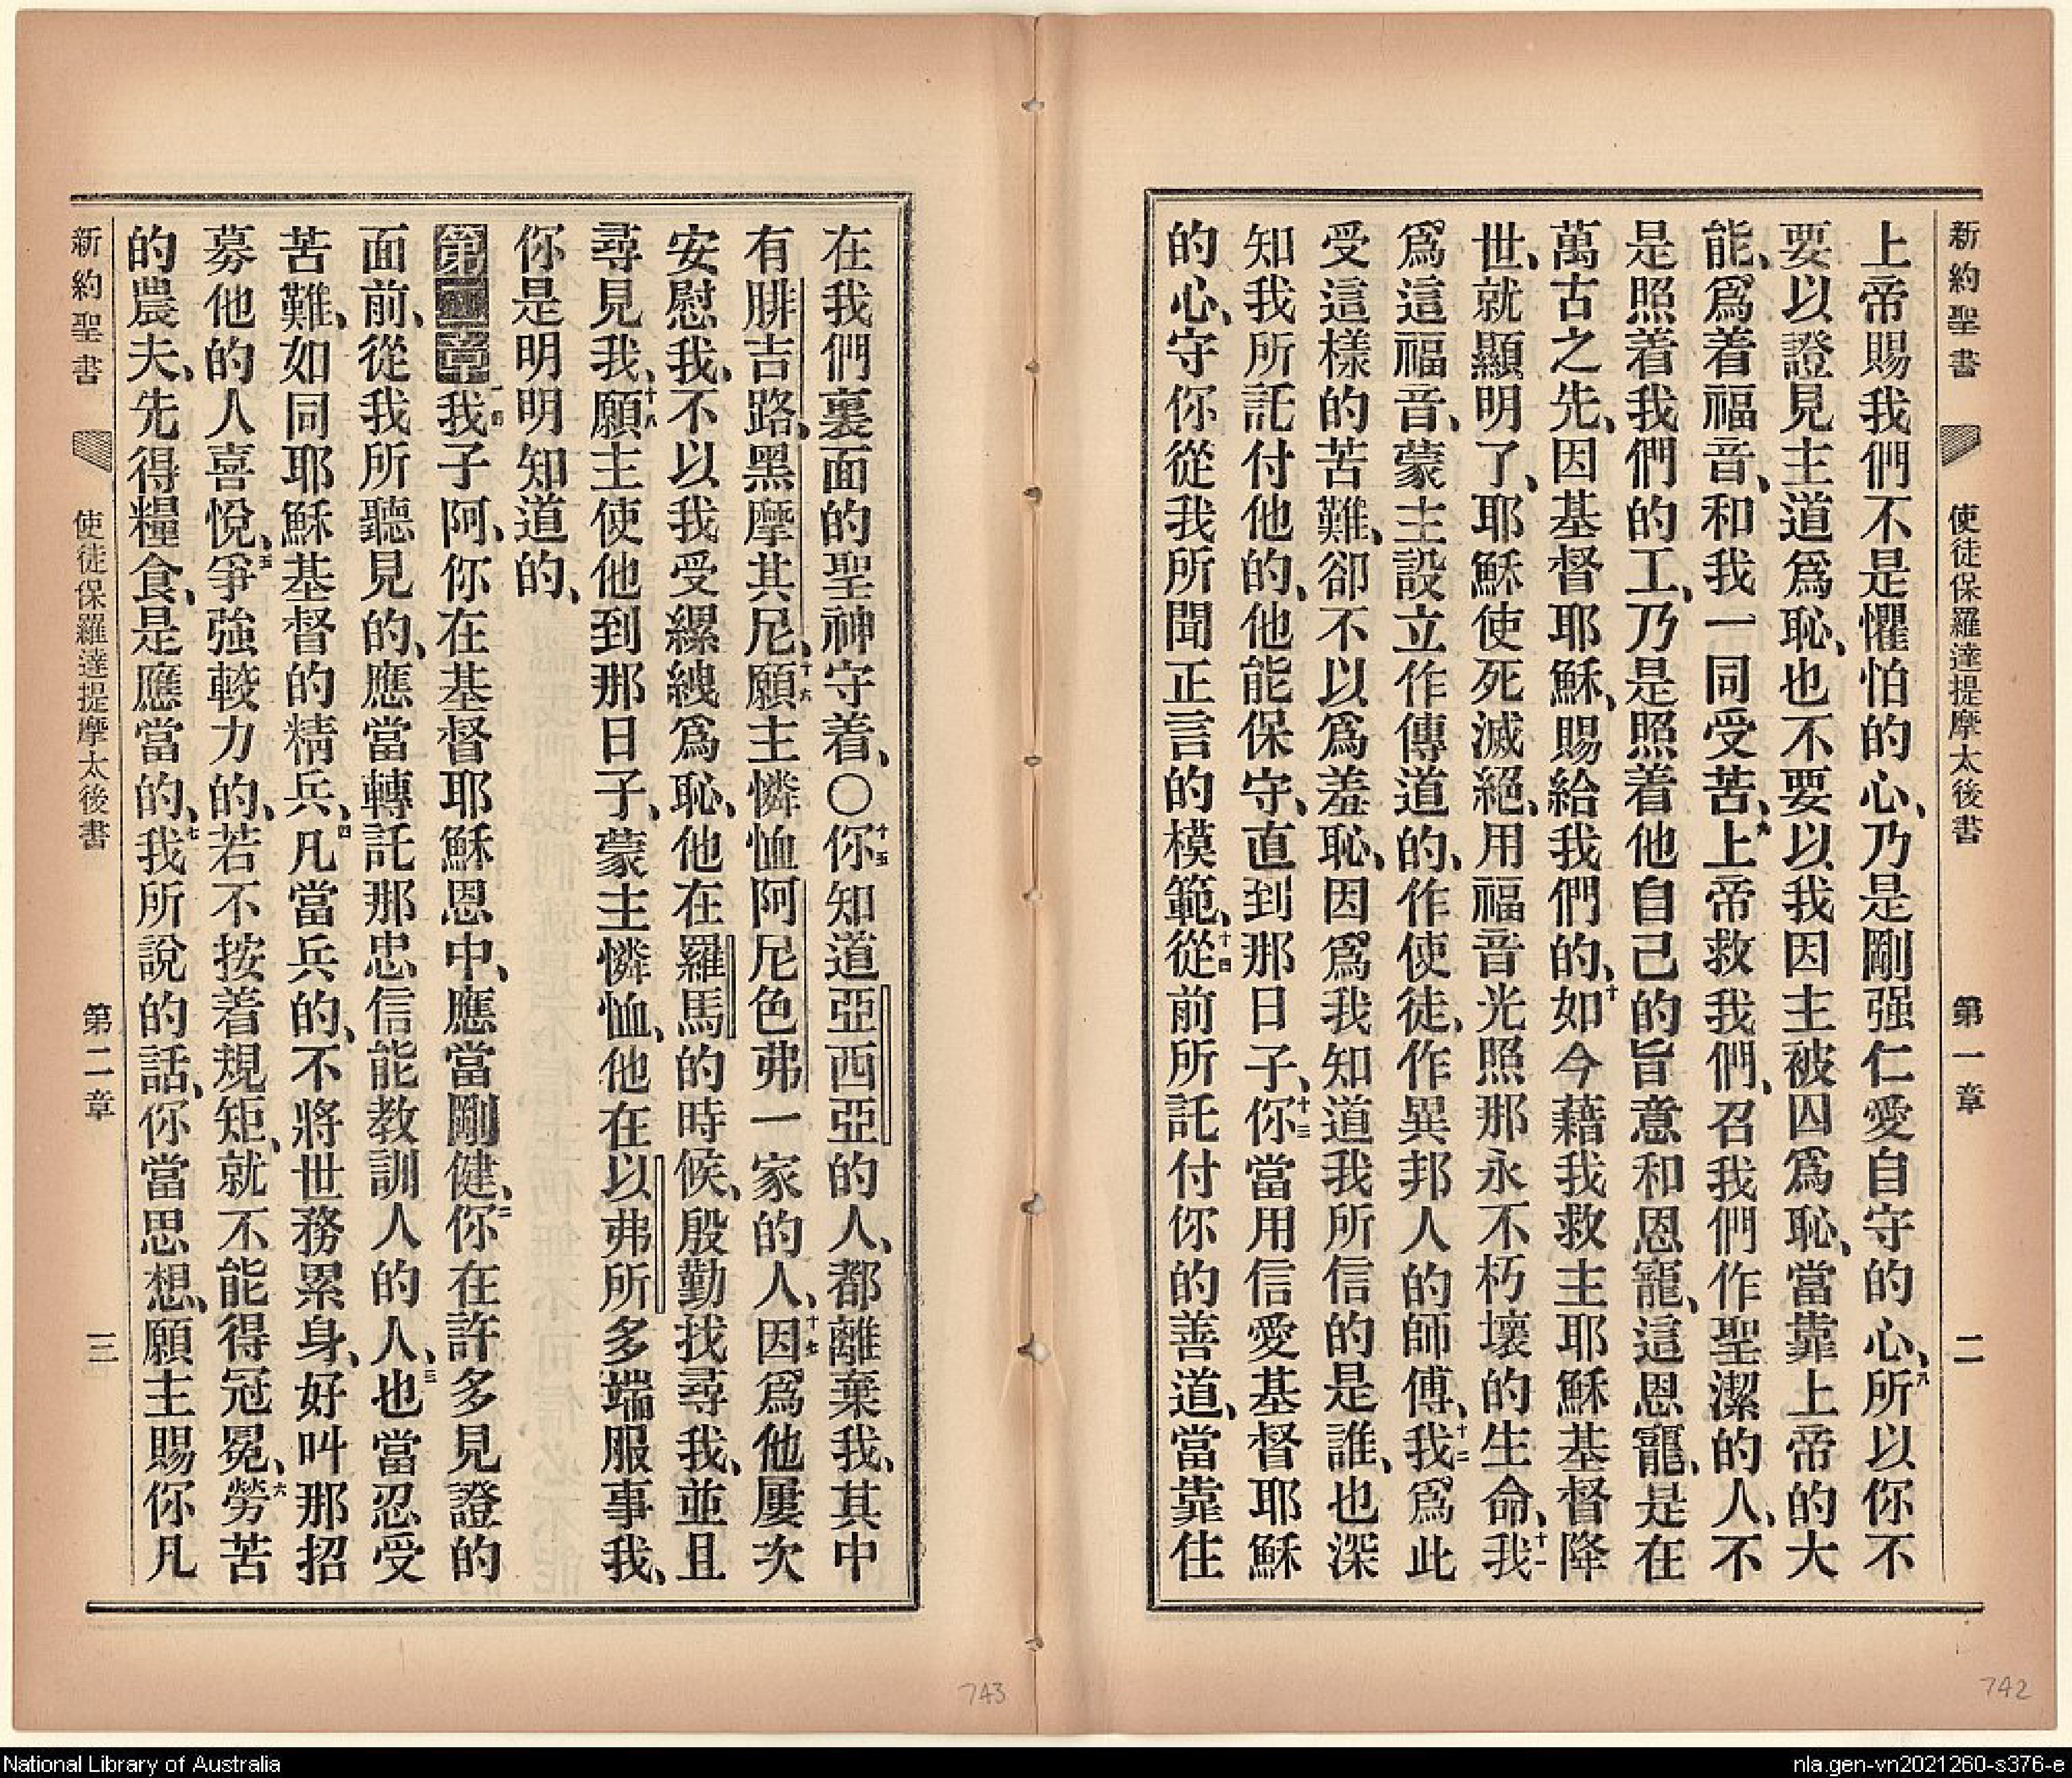 新約聖書 使徒保羅達提摩太後書 第一章 二
上帝賜我們不是懼怕的心、乃是剛强仁愛自守的心、九所以你不
要以證見主道爲恥、也不要以我因主被囚爲恥、當靠上帝的大
能、爲着福音、和我一同受苦、上帝救我們、召我們作聖潔的人、不
是照着我們的工、乃是照着他自己的旨意和恩寵、這恩寵、是在
萬古之先、因基督耶穌、賜給我們的、十如今藉我救主耶穌基督降
世、就顯明了、耶穌使死滅絕、用福音光照那永不朽壞的生命、十一我
爲這福音、蒙主設立作傳道的、作使徒、作異邦人的師傅、十二我爲此
受這樣的苦難、卻不以爲羞恥、因爲我知道我所信的是誰、也深
知我所託付他的、他能保守、直到那日子、十三你當用信愛基督耶穌
的心、守你從我所聞正言的模範、十四從前所託付你的善道、當靠住
在我們裏面的聖神守着、〇十五你知道亞西亞的人、都離棄我、其中
有腓吉路、黑摩其尼、十六願主憐恤阿尼色弗一家的人、十七因爲他屢次
安慰我、不以我受縲絏爲恥、他在羅馬的時候、殷勤找尋我、並且
尋見我、十八願主使他到那日子、蒙主憐恤、他在以弗所多端服事我、
你是明明知道的、
第二章一我子阿、你在基督耶穌恩中、應當剛健、二你在許多見證的
面前、從我所聽見的、應當轉託那忠信能教訓人的人、三也當忍受
苦難、如同耶穌基督的精兵、四凡當兵的、不將世務累身、好叫那招
募他的人喜悅、五爭強較力的、若不按着規矩、就不能得冠冕、六勞苦
的農夫、先得糧食、是應當的、七我所說的話、你當思想、願主賜你凡
新約聖書 使徒保羅達提摩太後書 第二章 三
743
742
National Library of Australia
nla.gen-vn2021260-s376-e